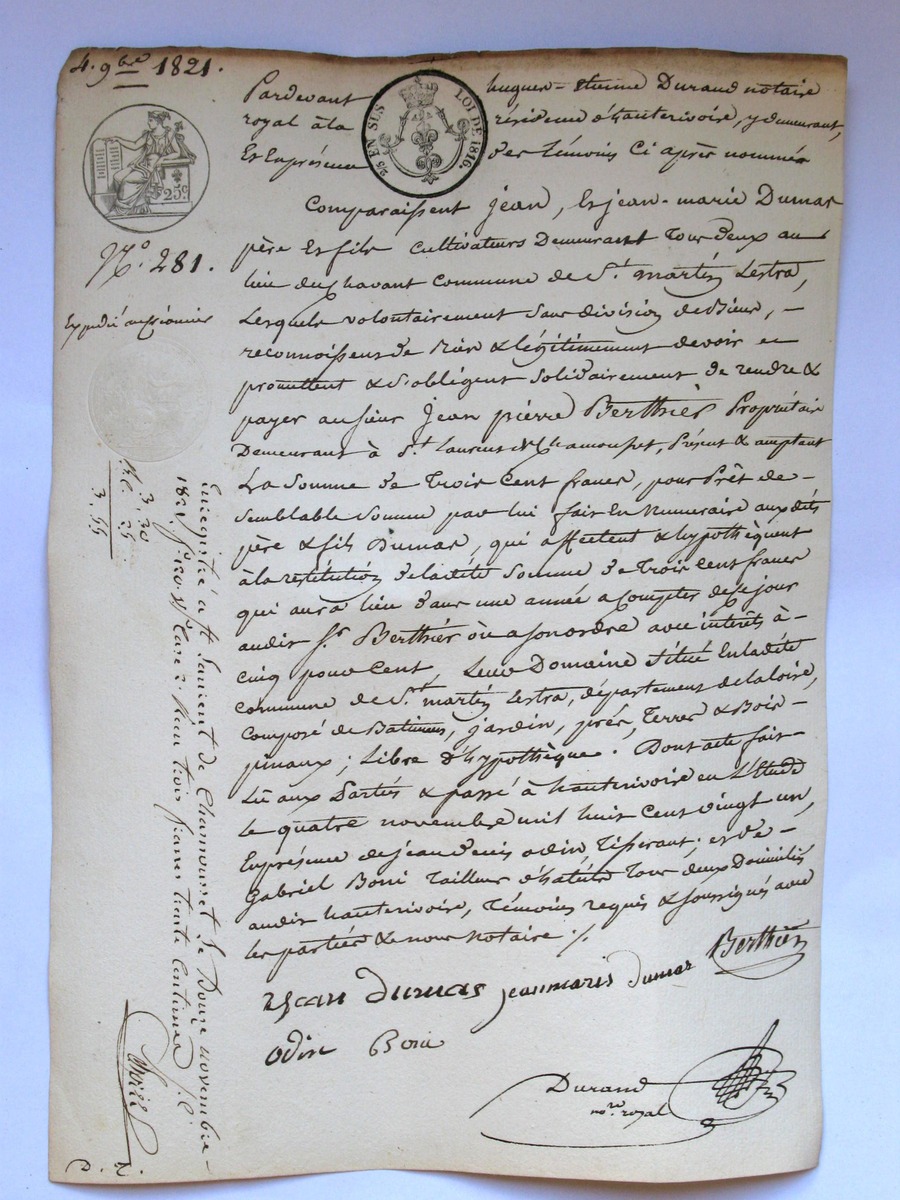 4. 9bre 1821.
25 EN SUS
LOI DE 1816.
25c
N.° 281.
Expédié au Créancier
Pardevant hugues-étienne Durand notaire
royal à la résidence d'hauterivoire, y demeurant,
Et En présence des témoins Ci après nommés
Comparaissent jean, Et jean-marie Dumas
père Et fils cultivateurs Demeurant Tous deux au
lieu du chavant Commune de St. martin Lestra,
Lesquels volontairement sans division de Bieux, -
reconnoissent de Bien & légitimement devoir et
promettent & s'obligent solidairement de rendre &
payer au sieur jean pierre Berthier Propriétaire
Demeurant à St. Laurent de Chamousset, Présent & acceptant
La Somme de Trois Cent francs, pour Prêt de-
semblable Somme par lui fait En Numéraire aux dits
père & fils Dumas, qui affectent & hypothèquent
à la restitution de la dite Somme de Trois Cent francs
qui aura lieu dans une année a Compter de ce jour
audit Sr. Berthier ou a son ordre avec intérêts à-
Cinq pour cent, Leur Domaine situé En la dite
Commune de St. martin Lestra, département de la loire,
Composé de Batimens, jardin, prés, Terres & Bois-
pinaux; Libre d'hypothèque. Dont acte fait-
Lu aux Parties & passé à hauterivoire en L'Etude
Le quatre novembre mil huit Cent vingt un,
En présence de jean denis odin Tisserant; et de-
Gabriel Boni Tailleur d'habits Tous deux Domiciliés
audit hauterivoire, Témoins requis & soussignés avec
les parties & nous notaire ./.
jean Dumas jeanmarie dumas Berthier
odin Boni
Durand
nre. royal
3. 30
33
3. 55
Enregistré a St. Laurent de Chamousset le Douze novembre
1821, Reçu trois francs trente Centimes
D. R.